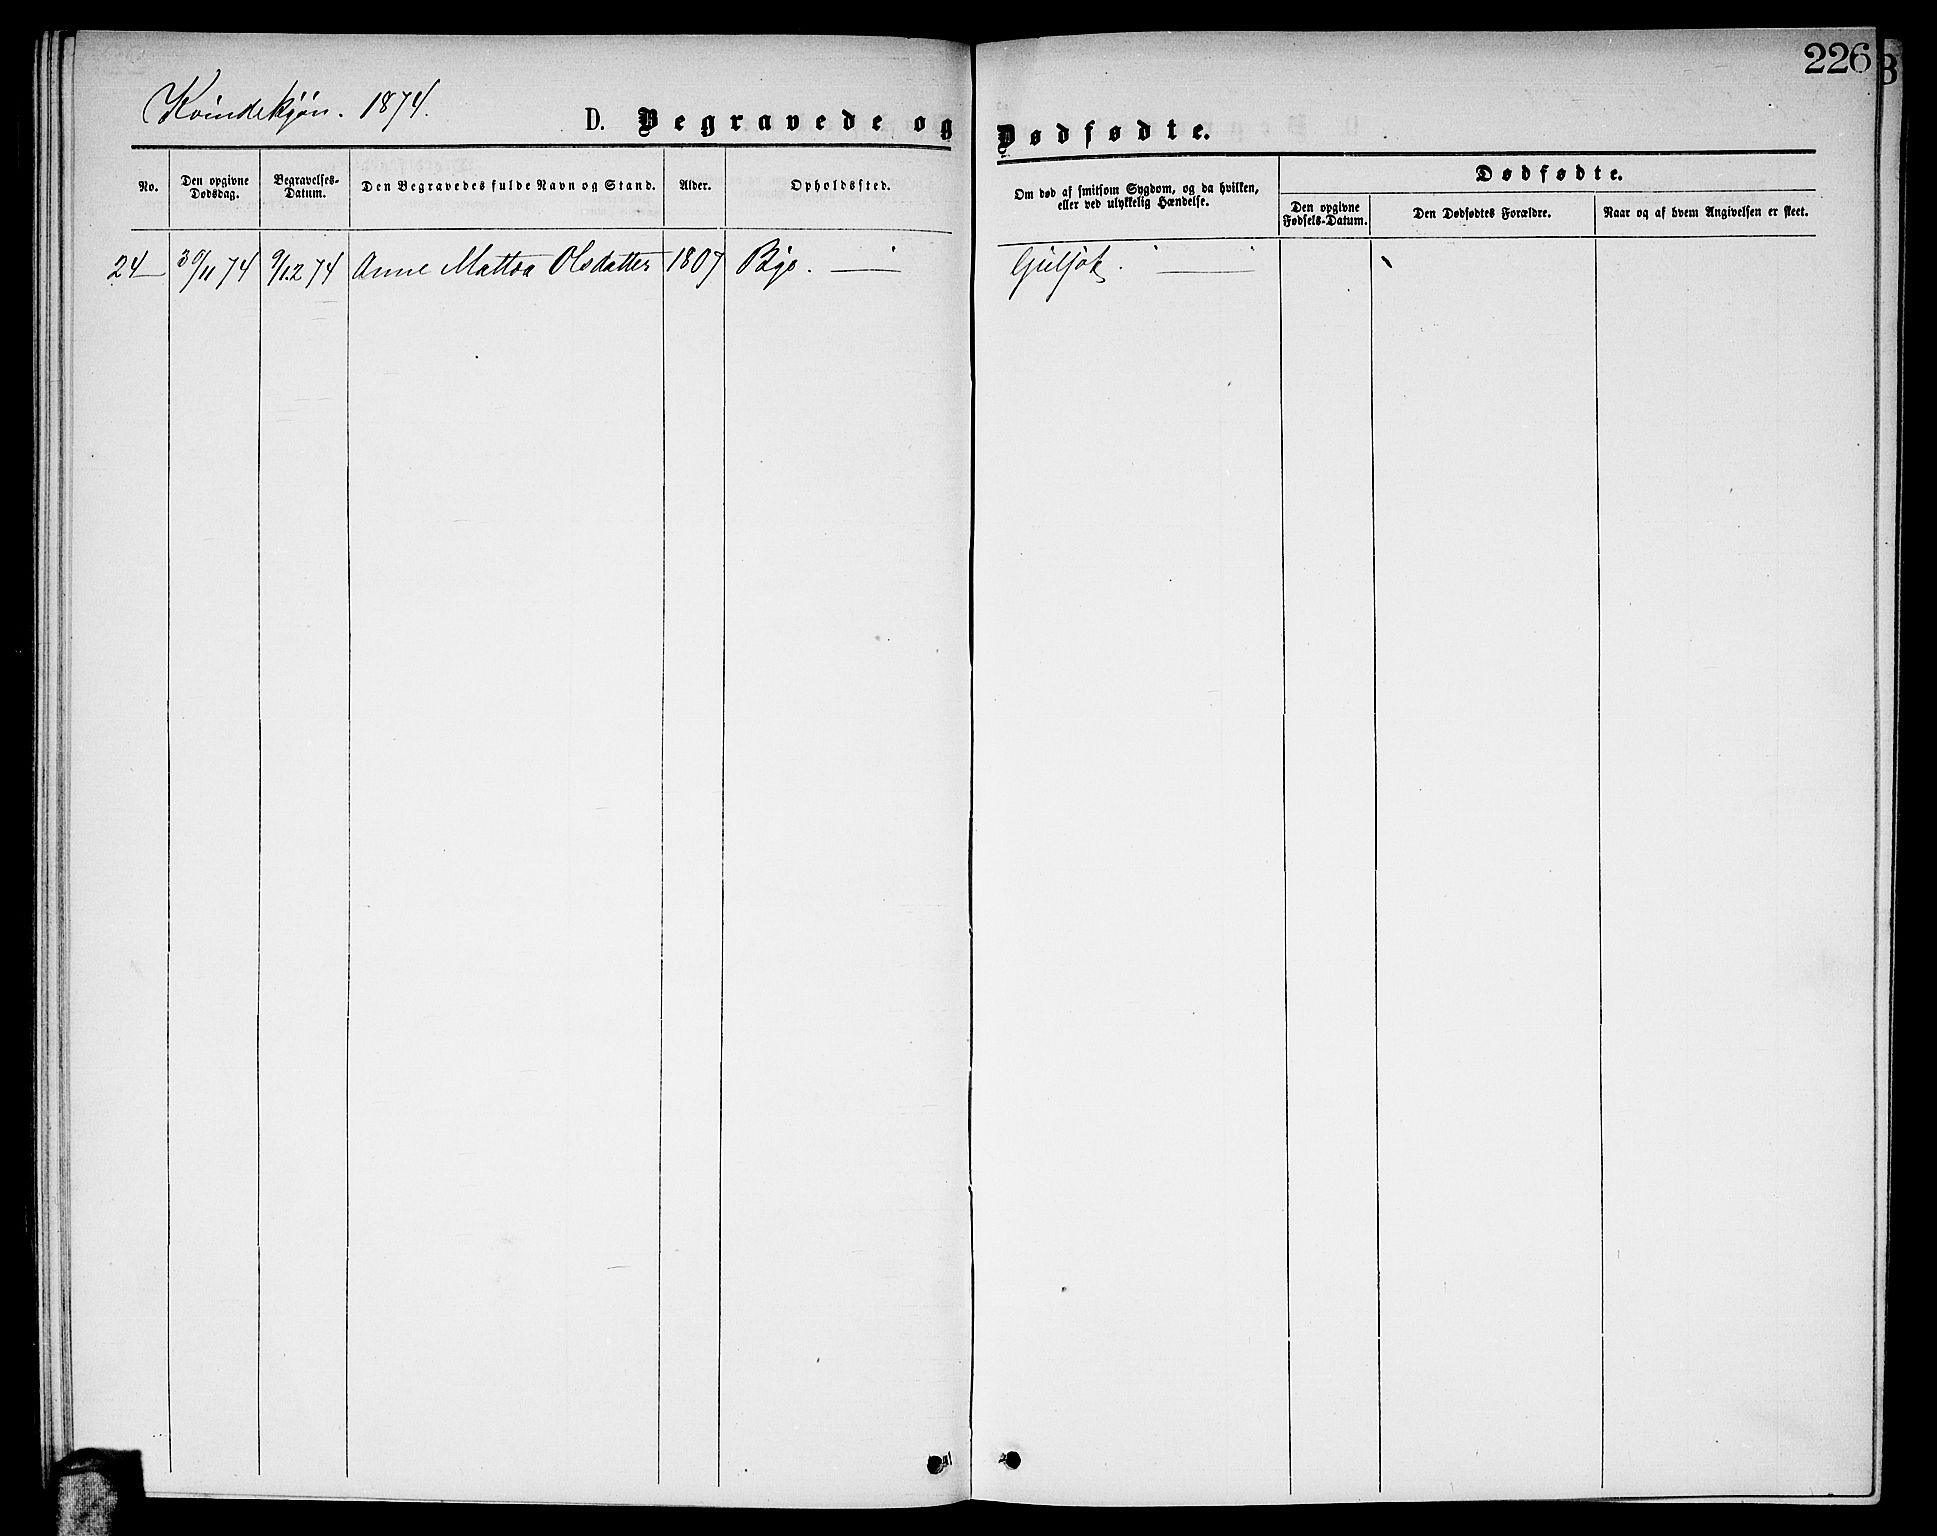 226
Kvindekjøn. 1874.
D. Begravede og Dødfødte.
No.
Den opgivne Dødsdag.
Begravelses-Datum.
Den Begravedes fulde Navn og Stand.
Alder.
Opholdssted.
Om død af smitsom Sygdom, og da hvilken,
eller ved ulykkelig Hændelse.
Dødfødte.
Den opgivne Fødsels-Datum.
Den Dødfødtes Forældre.
Naar og af hvem Angivelsen er skeet.
24 30/11 74 9/12 74 Anne Mattea Olsdatter 1807